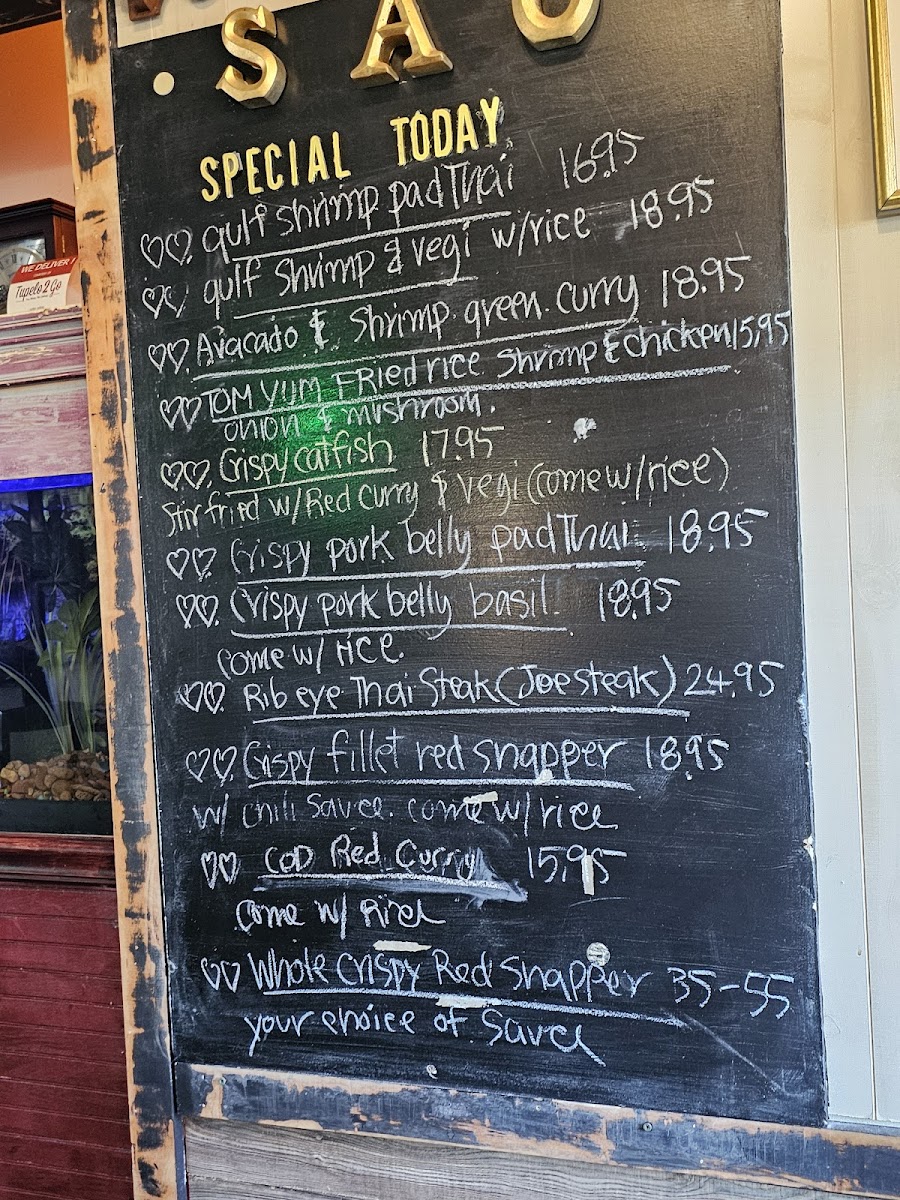 SAO
SPECIAL TODAY
gulf shrimp pad Thai 16.95
gulf shrimp & vegi w/rice 18.95
Avacado & Shrimp green curry 18.95
TOM YUM FRied rice Shrimp & chicken 15.95
onion & mushroom.
Crispy catfish 17.95
Stir fried w/Red Curry & vegi (come w/rice)
Crispy pork belly pad Thai 18.95
Crispy pork belly basil. 18.95
come w/ rice.
Rib eye Thai Steak (Joe steak) 24.95
Crispy fillet red snapper 18.95
w/ chili Sauce. come w/rice
COD Red Curry 15.95
Come w/ Rice
Whole Crispy Red Snapper 35-55
your choice of Sauce
WE DELIVER!
Tupelo2Go